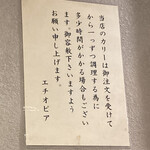 当店のカリーは御注文を受けて
から一つずつ調理する為に
多少時間がかかる場合もござい
ます。御容赦下さいますよう
お願い申し上げます。
エチオピア